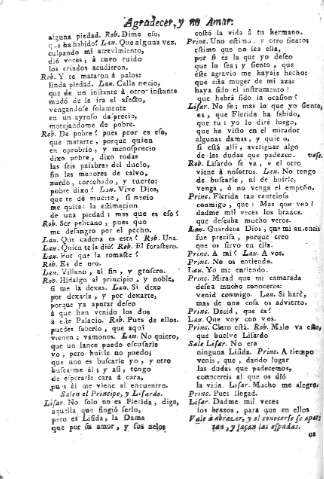 Agradecer, y no Amar.
alguna piedad. Rob. Dimo esso,
que ha habido? Lau. Que alguna vez,
culpando mi atrevimiento,
dió voces, á cuyo ruido
los criados acudieron.
Rob. Y te mataron á palos?
linda piedad. Lau. Calla necio,
que de un instante á otro instante
mudó de la ira el afecto,
vengandose solamente
en un ayroso desprecio,
motejandome de pobre.
Rob. De pobre? pues peor es esso,
que matarte, porque quien
en oprobrio, y menosprecio
dixo pobre, dixo todas
las seis palabras del duelo,
sin las manores de calvo,
zurdo, corcobado, y tuerto:
pobre dixo? Lau. Vive Dios,
que te dé muerte, si necio
me quitas la estimacion
de una piedad: mas que es eso?
Rob. Ser pelicano, pues que
me desangro por el pecho.
Lau. Que cadena es esta? Rob. Una.
Lau. Quien te la dió? Rob. El forastero.
Lau. Por que la tomaste?
Rob. Es de oro.
Lau. Villano, al fin, y grosero.
Rob. Hidalgo al principio, y noble,
si me la dexas. Lau. Si dexo
por dexarla, y por dexarte,
porque ya apartar debo
á que han venido los dos
á este Palacio. Rob. Pues de ellos
puedes saberlo, que aqui
vienen: vamonos. Lau. No quiero,
que un lance puedo escusarle
yo, pero huirle no puedo;
que uno es buscarle yo, y otro
buscarme él; y asi, tengo
de esperarle cara á cara,
pues él me viene al encuentro.
Salen el Principe, y Lisardo.
Lisar. No solo no es Flerida, digo,
aquella que fingió serlo,
pero es Lisida, la Dama
que por su amor, y sus zelos
costó la vida á tu hermano.
Princ. Uno estimo, y otro siento:
estimo que no sea ella,
por si es la que yo deseo
que lo sea; y siento, que
este agravio me hayais hecho:
que esta muger de mi azar
haya sido el instrumento!
que habrá sido la ocasion?
Lisar. No sé: mas lo que yo siento,
es, que Flerida ha sabido,
que tu: yo lo diré luego,
que he visto en el mirador
algunas damas, y quie o,
si está allí, averiguar algo
de las dudas que padezco. vase.
Rob. Lisardo se va, y el otro
viene á nosotros. Lau. No tengo
de buscarle, ni de huirle,
venga, ó no venga el empeño.
Princ. Flerida tan cautelosa
conmigo, que: Mas que veo?
dadme mil veces los brazos.
que de buscaros mucho
Lau. Guardeos Dios, que mi ausencia
fue precisa, porque creo
que os sirvo en ella.
Princ. A mi? Lau. A vos.
Princ. No os entiendo.
Lau. Yo me entiendo.
Princ. Mirad que mi camarada
desea mucho conoceros:
venid conmigo. Lau. Si haré,
mas de una cosa os advierto.
Princ. Decid, que es?
Lau. Que voy con vos.
Princ. Claro está. Rob. Malo va esto,
que buelve Lisardo
Sale Lisar. No era
ninguna Lisida. Princ. A tiempo
venis, que, dando lugar
las dudas que padecemos,
conocereis al que os dió
la vida. Lisar. Mucho me alegro.
Princ. Pues llegad.
Lisar. Dadme mil veces
los brazos, para que en ellos
Vale á abrazar, y al conocerse se apartan, y sacan las espadas.